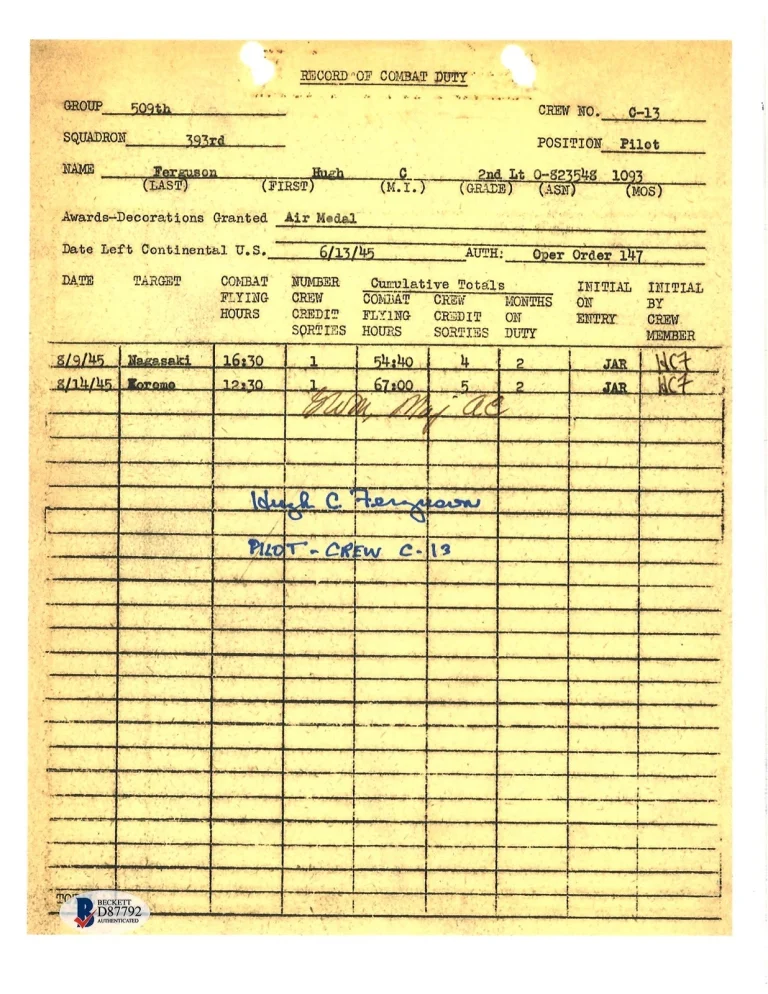 RECORD OF COMBAT DUTY
GROUP 509th CREW NO. C-13
SQUADRON 393rd POSITION Pilot
NAME Ferguson Hugh C 2nd Lt O-823548 1093
(LAST) (FIRST) (M.I.) (GRADE) (ASN) (MOS)
Awards-Decorations Granted Air Medal
Date Left Continental U.S. 6/13/45 AUTH: Oper Order 147
DATE TARGET COMBAT NUMBER Cumulative Totals INITIAL INITIAL
FLYING CREW COMBAT CREW MONTHS ON BY
HOURS CREDIT FLYING CREDIT ON ENTRY CREW
SORTIES HOURS SORTIES DUTY MEMBER
8/9/45 Nagasaki 16:30 1 54:40 4 2 JAR HCF
8/14/45 Koromo 12:30 1 67:00 5 2 JAR HCF
Maj AC
Hugh C Ferguson
PILOT - CREW C-13
BECKETT
D87792
AUTHENTICATED